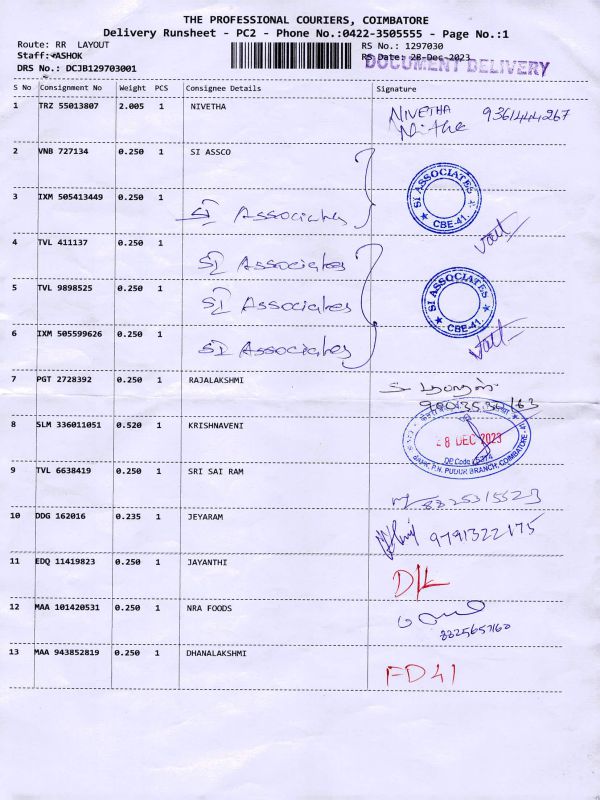 THE PROFESSIONAL COURIERS, COIMBATORE
Delivery Runsheet - PC2 - Phone No.:0422-3505555 - Page No.:1
Route: RR LAYOUT
RS No.: 1297030
Staff: ASHOK
RS Date: 28-Dec-2023
DOCUMENT DELIVERY
DRS No.: DCJB129703001
S No Consignment No Weight PCS Consignee Details Signature
1 TRZ 55013807 2.005 1 NIVETHA NIVETHA 9361444267
2 VNB 727134 0.250 1 SI ASSCO
SI ASSOCIATES
CBE-41.
3 IXM 505413449 0.250 1 SI Associates
4 TVL 411137 0.250 1 SI Associates
5 TVL 9898525 0.250 1 SI Associates
SI ASSOCIATES
CBE-41.
6 IXM 505599626 0.250 1 SI Associates
7 PGT 2728392 0.250 1 RAJALAKSHMI
8 SLM 336011051 0.520 1 KRISHNAVENI
8 DEC 2023
P.N. PUDUR BRANCH, COIMBATORE
9 TVL 6638419 0.250 1 SRI SAI RAM 8825315523
10 DDG 162016 0.235 1 JEYARAM 9791322175
11 EDQ 11419823 0.250 1 JAYANTHI D/L
12 MAA 101420531 0.250 1 NRA FOODS
8825657160
13 MAA 943852819 0.250 1 DHANALAKSHMI FD41